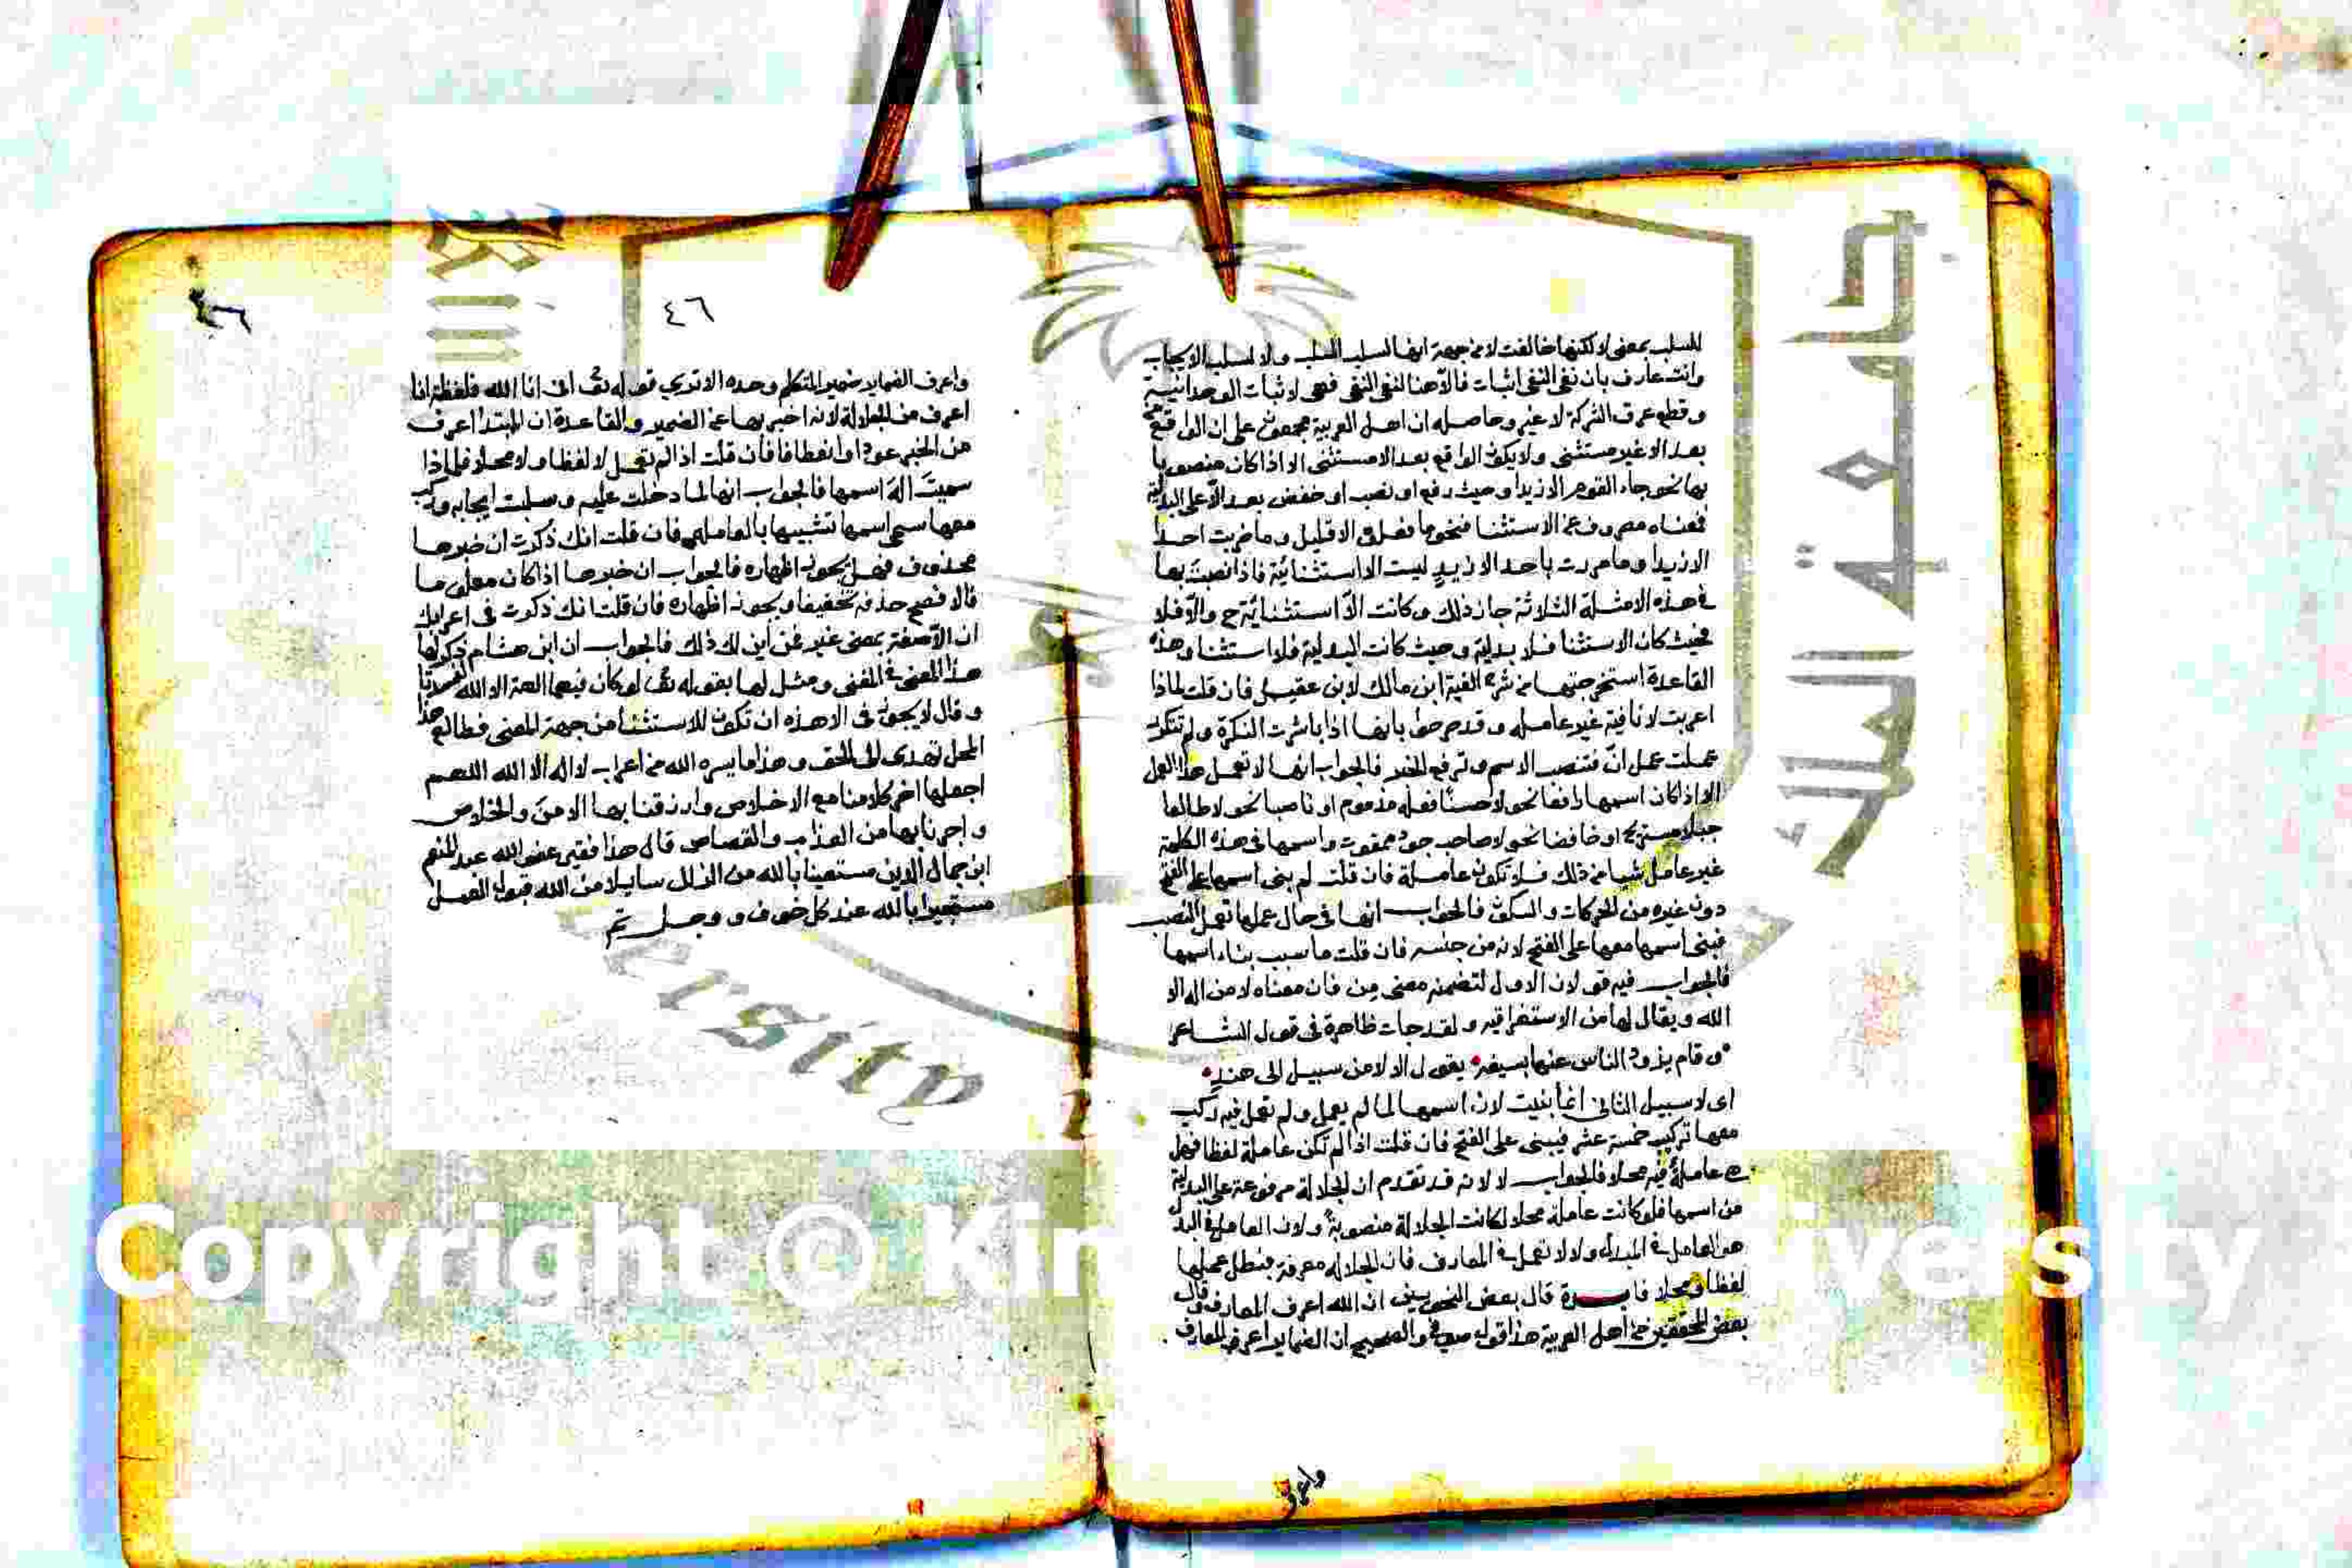 للسلب بمعنى لا لكنها خالفت لا من جهة انها لسلب السلب ولا لسلب الايجاب
وانت عارف بان نفى النفى اثبات فالا هنا لنفى النفى فهى لاثبات الوحدانية
وقطع عرق الشركة لا غير وحاصله ان اهل العربية مجمعون على ان الواقع
بعد الا غير مستثنى ولا يكون الواقع بعد الا مستثنى الا اذا كان منصوبا
بها نحو جاء القوم الا زيدا وحيث رفع او نصب او خفض بعد الا على البدلية
فمعناه مصروف عن الاستثنا فنحو ما فعلوه الا قليل وما ضربت احدا
الا زيدا وما مررت باحد الا زيد ليست الا استثنائية فاذا نصبت بعا
فى هذه الامثلة الثلاثة جاز ذلك وكانت الا استثنائية ح والا فلا
فحيث كان الاستثنا فلا بدلية وحيث كانت البدلية فلا استثنا وهذه
القاعدة استخرجتها من شرح الفية ابن مالك لابن عقيل فان قلت لماذا
اعربت لا نافية غير عامله وقد صرحوا بانها اذا باشرت النكرة ولم تتكرر
عملت عمل ان فتنصب الاسم وترفع الخبر فالجواب انها لا تعمل هذا العمل
الا اذا كان اسمها رافعا نحو لا حسنا فعله مذموم او ناصبا نحو لا طالعا
جبلا مستريح او خافضا نحو لا صاحب جود ممقوت واسمها فى هذه الكلمة
غير عامل شيا من ذلك فلا تكون عاملة فان قلت لم بنى اسمها على الفتح
دون غيره من الحركات والسكون فالجواب انها فى حال عملها تعمل النصب
فبنى اسمها معها على الفتح لانه من جنسه فان قلت ما سبب بناء اسمها
فالجواب فيه قولان الاول لتضمنه معنى من فان معناه لا من اله الا
الله ويقال لها من الاستغراقيه ولقد جات ظاهرة فى قول الشاعر
وقام يزود الناس عنها بسيفه يقول الا لا من سبيل الى هند
اى لا سبيل الثانى انما بنيت لان اسمها لما لم يعمل ولم تعمل فيه ركب
معها تركيب خمسة عشر فيبنى على الفتح فان قلت اذا لم تكن عاملة لفظا فهل
هى عاملة فيه محلا فالجواب لا لانه قد تقدم ان الجلالة مرفوعة على البدلية
من اسمها فلو كانت عاملة محلا لكانت الجلالة منصوبة ولان العامل فى البدل
هو العامل فى المبدل ولا لا تعمل فى المعارف فان الجلاله معرفة فبطل عملها
لفظا ومحلا فايدة قال بعض النحويين ان الله اعرف المعارف وقال
بعض المحققين من اهل العربية هذا قول صوفى والصحيح ان الضماير اعرف المعارف
واعرف
٤٦
واعرف الضماير ضمير المتكلم وحده الا ترى قوله تعالى انى انا الله فلفظة انا
اعرف من الجلالة لانه اخبر بها عن الضمير والقاعدة ان المبتدا اعرف
من الخبر فان قلت اذا لم تعمل لا لفظا ولا محلا فلماذا
سميت اله اسمها فالجواب انها لما دخلت عليه وسلبت ايجابه وركب
معها سمى اسمها تشبيها بالعاملة فان قلت انك ذكرت ان خبرها
محذوف فهل يجوز اظهاره فالجواب ان خبرها اذا كان معلوما
فالافصح حذفه تخفيفا ويجوز اظهاره فان قلت انك ذكرت فى اعرابك
ان الا صفة بمعنى غير فمن اين لك ذلك فالجواب ان ابن هشام ذكر لها
هذا المعنى فى المغنى ومثل لها بقوله تعالى لو كان فيهما الهة الا الله لفسدتا
وقال لا يجوز فى الا هذه ان تكون للاستثنا من جهة المعنى فطالع هذا
المحل تهدى الى الحق وهذا ما يسره الله من اعراب لا اله الا الله اللهم
اجعلها اخر كلامنا مع الاخلاص وارزقنا بها الامن والخلاص
واجرنا بها من العذاب والقصاص قال هذا فقير عفو الله عبد المنعم
ابن جمال الدين مستعينا بالله من الزلل سايلا من الله قبول العمل
مستجيرا بالله عند كل خوف ووجل تم
جامعة الملك
ersity
Copyright © Kin iversity